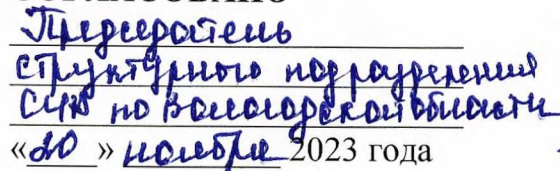 СОГЛАСОВАНО
Председатель
структурного подразделения
по Вологодской области
«20» ноября 2023 года